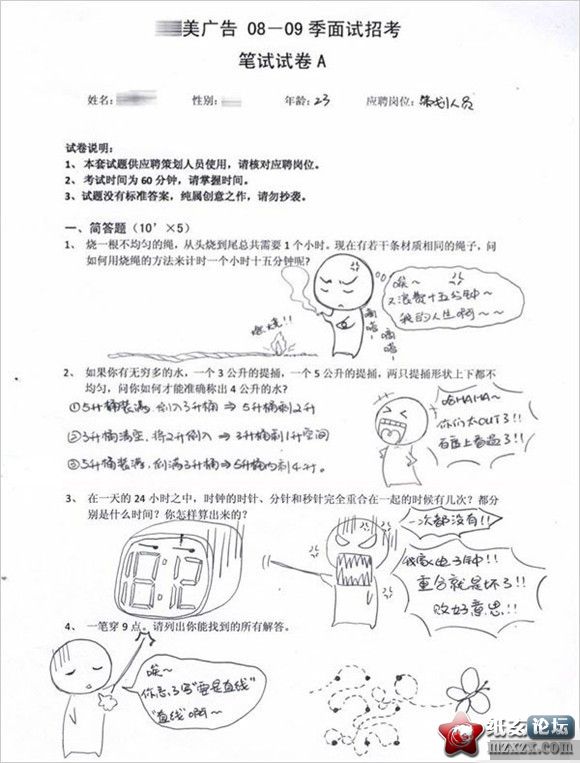 美广告 08－09 季面试招考
笔试试卷 A
姓名: 性别: 年龄: 23 应聘岗位: 策划人员
试卷说明:
1、 本套试题供应聘策划人员使用，请核对应聘岗位。
2、 考试时间为 60 分钟，请掌握时间。
3、试题没有标准答案，纯属创意之作，请勿抄袭。
一、简答题（10’×5）
1、 烧一根不均匀的绳，从头烧到尾总共需要 1 个小时。现在有若干条材质相同的绳子，问
如何用烧绳的方法来计时一个小时十五分钟呢?
唉~
又浪费十五分钟~
我的人生啊~~
嘀嗒,
嘀嗒,
燃烧!!
2、 如果你有无穷多的水，一个 3 公升的提捅，一个 5 公升的提捅，两只提捅形状上下都不
均匀，问你如何才能准确称出 4 公升的水?
①5升桶装满,倒入3升桶⇒5升桶剩2升
②3升桶清空,将2升倒入⇒3升桶剩1升空间
③5升桶装满,倒满3升桶⇒5升桶内剩4升。
哈HAHA~
你们太OUT了!!
百度上看过了!!
3、 在一天的 24 小时之中，时钟的时针、分针和秒针完全重合在一起的时候有几次? 都分
别是什么时间? 你怎样算出来的?
一次都没有!!
我家电子钟!!
重合就是坏了!!
败好意思!!
18:12
4、 一笔穿 9 点。请列出你能找到的所有解答。
唉~
你忘了写"要是直线"
"直线"啊~~
论坛
mzxzx.com